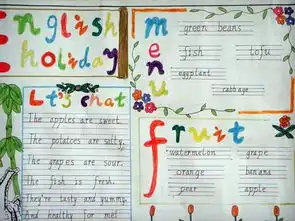 English
holiday
menu
green beans
fish tofu
eggplant
cabbage
Let's chat
The apples are sweet.
The potatoes are salty.
The grapes are sour.
The fish is fresh.
They're tasty and yummy.
and healthy for me!
fruit
watermelon grape
orange banana
pear apple